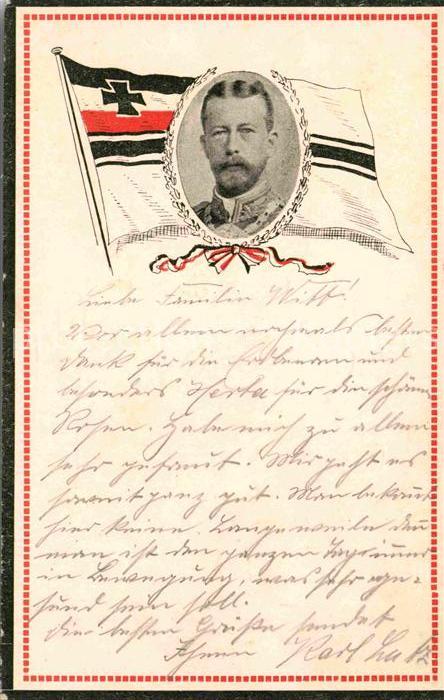 Liebe Familie Witt!
Vor allem nochmals besten
Dank für die Erdbeeren und
besonders Herta für die schönen
Rosen. Habe mich zu allem
sehr gefreut. Mir geht es
soweit ganz gut. Man bekommt
hier keine Langeweile denn
man ist den ganzen Tag immer
in Bewegung, was sehr ge-
sund sein soll.
Die besten Grüße sendet
Ihnen Karl Lutz